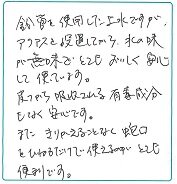 鉛管を使用した上水ですが、
アクアスを設置してから、水の味
が無味でとてもおいしく安心
して使ています。
尿から吸収される有毒成分
もなく安心です。
また きりかえることなく蛇口
をひねるだけで使えるのが とても
便利です。